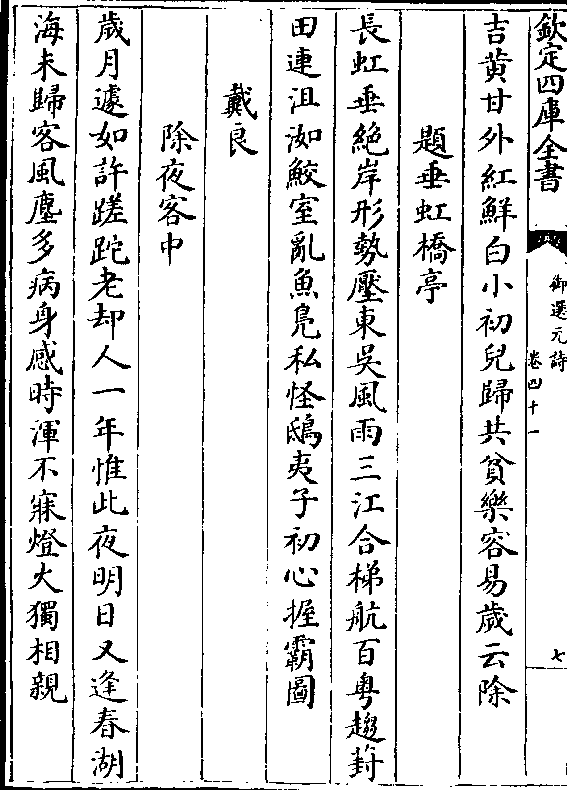 欽定四庫全書
御選元詩
卷四十一
七
吉黄甘外紅鮮白小初兒歸共貧樂容易歲云除
題垂虹橋亭
長虹垂絶岸形勢壓東吳風雨三江合梯航百粤趨葑
田連沮洳鮫室亂魚鳬私怪鴟夷子初心握霸圖
戴良
除夜客中
歲月遽如許蹉跎老却人一年惟此夜明日又逢春湖
海未歸客風塵多病身感時渾不寐燈火獨相親